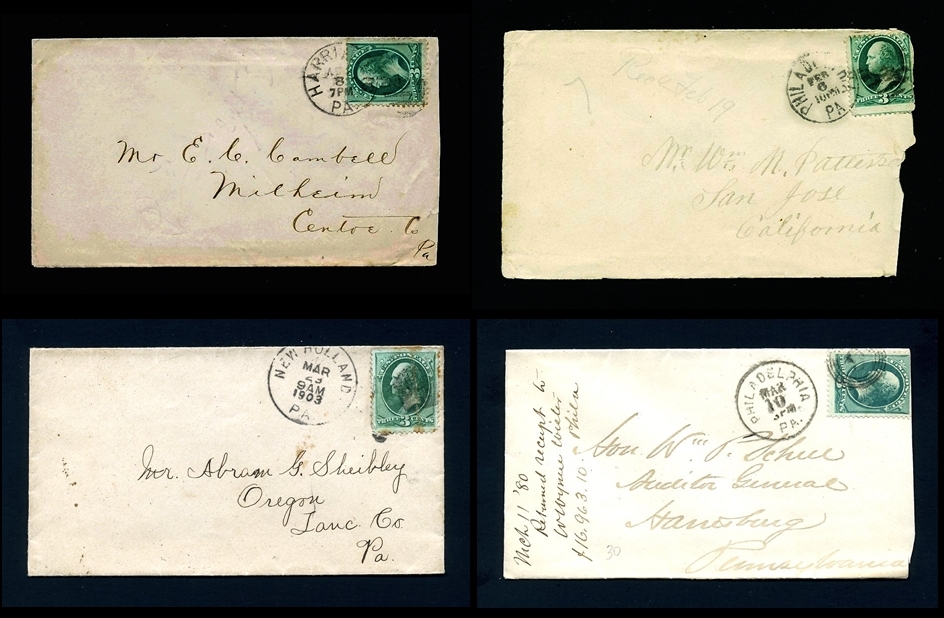 HARRI
8
7PM
PA.
Mr. E. C. Cambell
Milheim
Centre Co
Pa
PHILAD
FEB
6
10PM
PA
3
THREE CENTS
Rec Feb 19
Mr. Wm. M. Pattis
San Jose
California
NEW HOLLAND
MAR
23
9AM
1903
PA.
U.S. POSTAGE
3
THREE CENTS
Mr. Abram G. Sheibley
Oregon
Lanc. Co.
Pa.
PHILADELPHIA
MAR
10
3PM
PA.
Mch 11 '80
Returned receipt to
W Wynne Wister
Phila
$16.963.10
30
Hon. Wm. P. Schell
Auditor General
Harrisburg
Pennsylvania